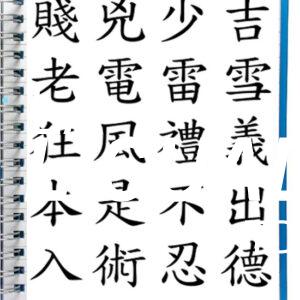 賤兇少吉
老電雷雪
風禮義
本是不出
入術忍德